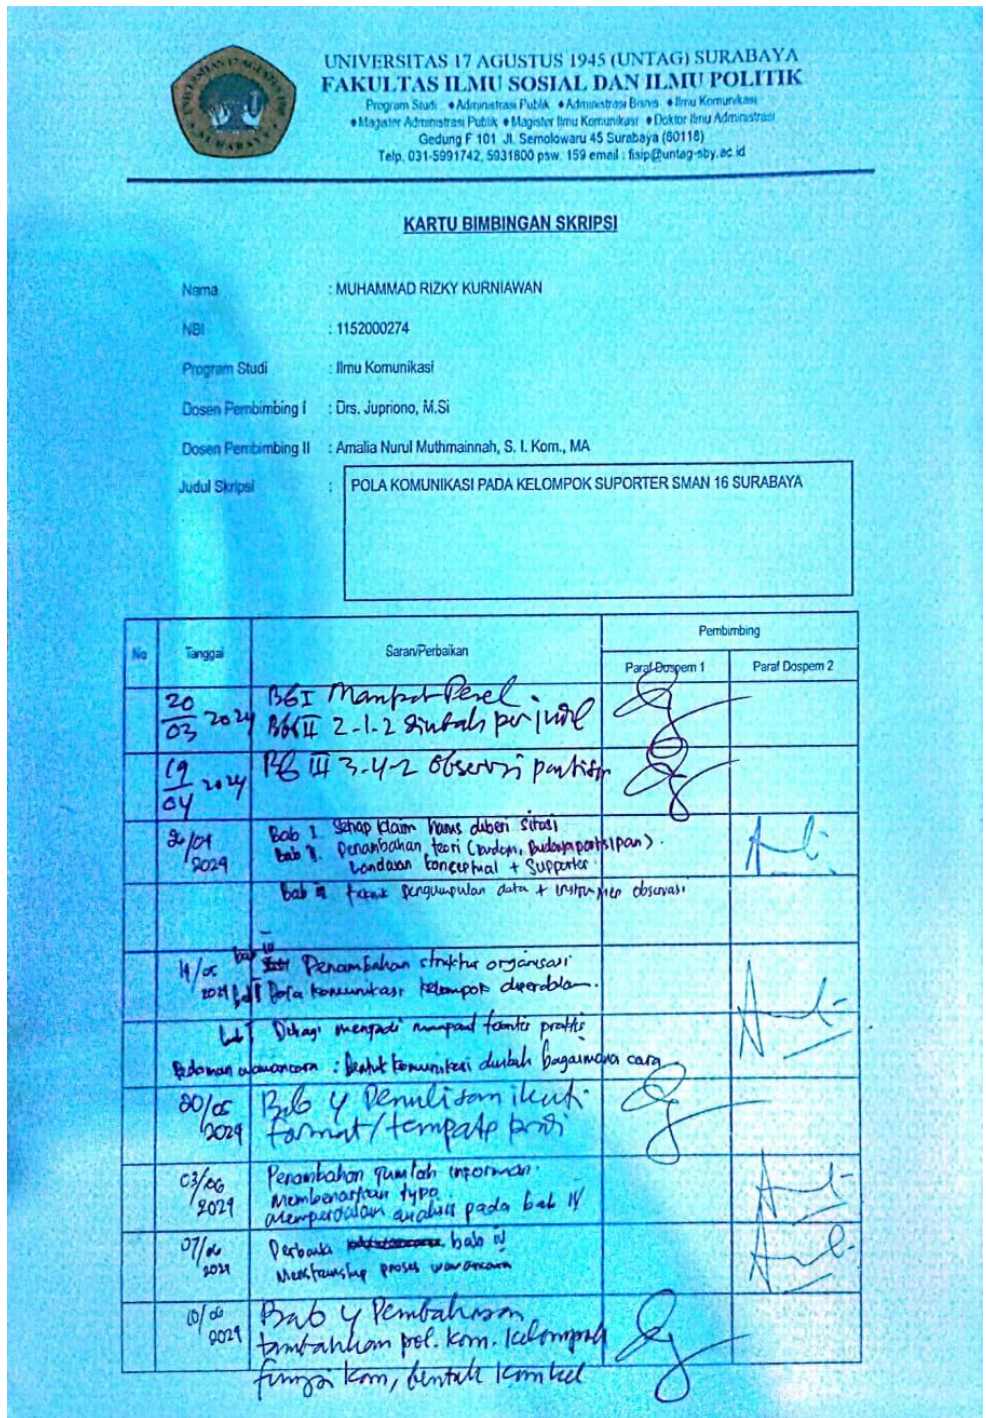 UNIVERSITAS 17 AGUSTUS 1945 (UNTAG) SURABAYA
FAKULTAS ILMU SOSIAL DAN ILMU POLITIK
Program Studi : ●Administrasi Publik ●Administrasi Bisnis ●Ilmu Komunikasi
●Magister Administrasi Publik ●Magister Ilmu Komunikasi ●Doktor Ilmu Administrasi
Gedung F 101 Jl. Semolowaru 45 Surabaya (60118)
Telp. 031-5991742, 5931800 psw. 159 email : fisip@untag-sby.ac.id
KARTU BIMBINGAN SKRIPSI
Nama : MUHAMMAD RIZKY KURNIAWAN
NBI : 1152000274
Program Studi : Ilmu Komunikasi
Dosen Pembimbing I : Drs. Jupriono, M.Si
Dosen Pembimbing II : Amalia Nurul Muthmainnah, S. I. Kom., MA
Judul Skripsi : POLA KOMUNIKASI PADA KELOMPOK SUPORTER SMAN 16 SURABAYA
No Tanggal Saran/Perbaikan Pembimbing
Paraf Dospem 1 Paraf Dospem 2
20/03 2024
2.1.2
19/04 2024 III 3.4.2 Observasi
2024 Bab I. Setiap klaim harus diberi sitasi
Penambahan teori
Landasan konceptual + Supporter
Bab teknik pengumpulan data + instrumen observasi
Penambahan struktur organisasi
Pola komunikasi kelompok
Dibagi menjadi praktis
Pedoman wawancara : Bentuk komunikasi diubah bagaimana cara
20/05 2024 Penulisan ikuti
format/
03/06 2024 Penambahan jumlah informan.
Membenarkan typo
Memperdalam analisis pada bab IV
07/06 2024 bab IV
proses wawancara
10/06 2024 Pembahasan
tambahkan pol. kom. kelompok
fungsi kom, bentuk